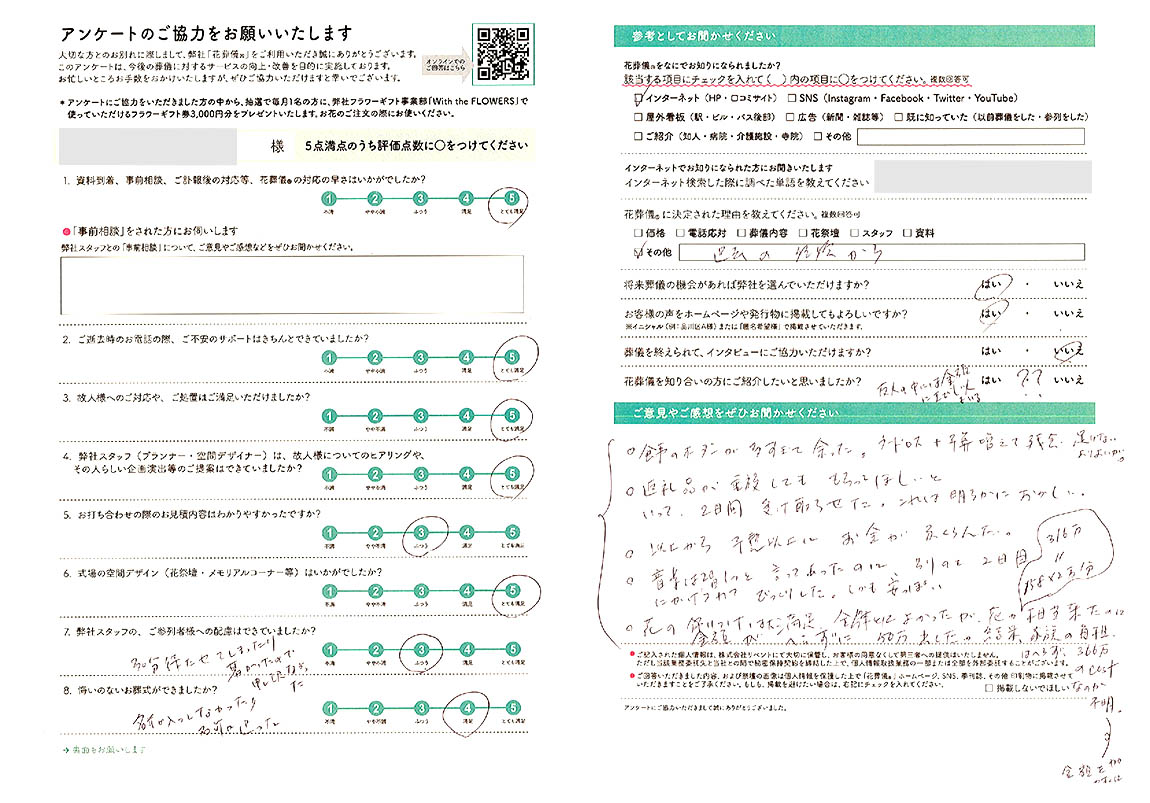 アンケートのご協力をお願いいたします
大切な方とのお別れに際しまして、弊社「花葬儀®」をご利用いただき誠にありがとうございます。
このアンケートは、今後の葬儀に対するサービスの向上・改善を目的に実施しております。
お忙しいところお手数をおかけいたしますが、ぜひご協力いただけますと幸いでございます。
オンラインでの
ご回答はこちら
*アンケートにご協力をいただきました方の中から、抽選で毎月1名の方に、弊社フラワーギフト事業部「With the FLOWERS」で
使っていただけるフラワーギフト券3,000円分をプレゼントいたします。お花のご注文の際にお使いください。
様 5点満点のうち評価点数に○をつけてください
1. 資料到着、事前相談、ご訃報後の対応等、花葬儀®の対応の早さはいかがでしたか?
1 2 3 4 5
不満 やや不満 ふつう 満足 とても満足
●「事前相談」をされた方にお伺いします
弊社スタッフとの「事前相談」について、ご意見やご感想などをぜひお聞かせください。
2. ご逝去時のお電話の際、ご不安のサポートはきちんとできていましたか?
1 2 3 4 5
不満 やや不満 ふつう 満足 とても満足
3. 故人様へのご対応や、ご処置はご満足いただけましたか?
1 2 3 4 5
不満 やや不満 ふつう 満足 とても満足
4. 弊社スタッフ(プランナー・空間デザイナー)は、故人様についてのヒアリングや、
その人らしい企画演出等のご提案はできていましたか?
1 2 3 4 5
不満 やや不満 ふつう 満足 とても満足
5. お打ち合わせの際のお見積内容はわかりやすかったですか?
1 2 3 4 5
不満 やや不満 ふつう 満足 とても満足
6. 式場の空間デザイン(花祭壇・メモリアルコーナー等)はいかがでしたか?
1 2 3 4 5
不満 やや不満 ふつう 満足 とても満足
7. 弊社スタッフの、ご参列者様への配慮はできていましたか?
30分待たせてしまったり
寒かったので
1 2 3 4 5
不満 やや不満 ふつう 満足 とても満足
8. 悔いのないお葬式ができましたか?
名前が入ってなかったり
名前が違った
1 2 3 4 5
不満 やや不満 ふつう 満足 とても満足
→裏面をお願いします
参考としてお聞かせください
花葬儀®をなにでお知りになられましたか?
該当する項目にチェックを入れて( )内の項目に○をつけてください。複数回答可
☑インターネット(HP・口コミサイト) □SNS(Instagram・Facebook・Twitter・YouTube)
□屋外看板(駅・ビル・バス後部) □広告(新聞・雑誌等) □既に知っていた(以前葬儀をした・参列をした)
□ご紹介(知人・病院・介護施設・寺院) □その他
インターネットでお知りになられた方にお聞きいたします
インターネット検索した際に調べた単語を教えてください
花葬儀®に決定された理由を教えてください。複数回答可
□価格 □電話応対 □葬儀内容 □花祭壇 □スタッフ □資料
☑その他 過去の経験から
将来葬儀の機会があれば弊社を選んでいただけますか? はい ・ いいえ
お客様の声をホームページや発行物に掲載してもよろしいですか? はい ・ いいえ
※イニシャル(例:品川区A様)または「匿名希望様」で掲載させていただきます。
葬儀を終えられて、インタビューにご協力いただけますか? はい ・ いいえ
花葬儀を知り合いの方にご紹介したいと思いましたか? はい ?? いいえ
友人の中には金額
ご意見やご感想をぜひお聞かせください
○返礼品が重複してももらってほしいと
いって、2日間受け取らせた。これは明らかにおかしい。
○以上から予想以上にお金がふくらんだ。
366万
○音楽は習いと言ってあったのに、別のを2日目
にかけられてびっくりした。しかも安っぽい
158×2万/分
○花の飾りつけはまぁ満足、全体にはよかったが、花の相当来たのに
結果、家族の負担
はへらず、366万
のcost
なのか
不明。
●ご記入された個人情報は、株式会社リベントにて大切に保管し、お客様の同意なくして第三者への提供はいたしません。
ただし当該業務委託先と当社との間で秘密保持契約を締結した上で、個人情報取扱業務の一部または全部を外部委託することがございます。
●ご回答いただきました内容、および祭壇の画像は個人情報を保護した上で「花葬儀®」ホームページ、SNS、季刊誌、その他印刷物に掲載させて
いただきますことをご了承ください。もしも、掲載を避けたい場合は、右記にチェックを入れてください。
□掲載しないでほしい
アンケートにご協力いただきまして誠にありがとうございました。